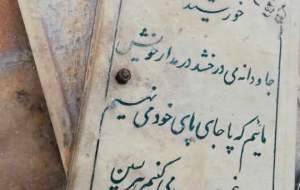 خورشید
جاودانه می درخشد در مدار خویش
مائیم که پا جای پای خود می نهیم
می کنیم هر پسین